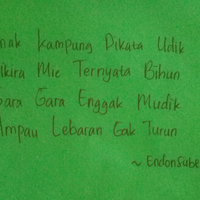 nak Kampung Dikata Udik
kira Mie Ternyata Bihun
ara Gara Enggak Mudik
mpau Lebaran Gak Turun
~ EndonSube